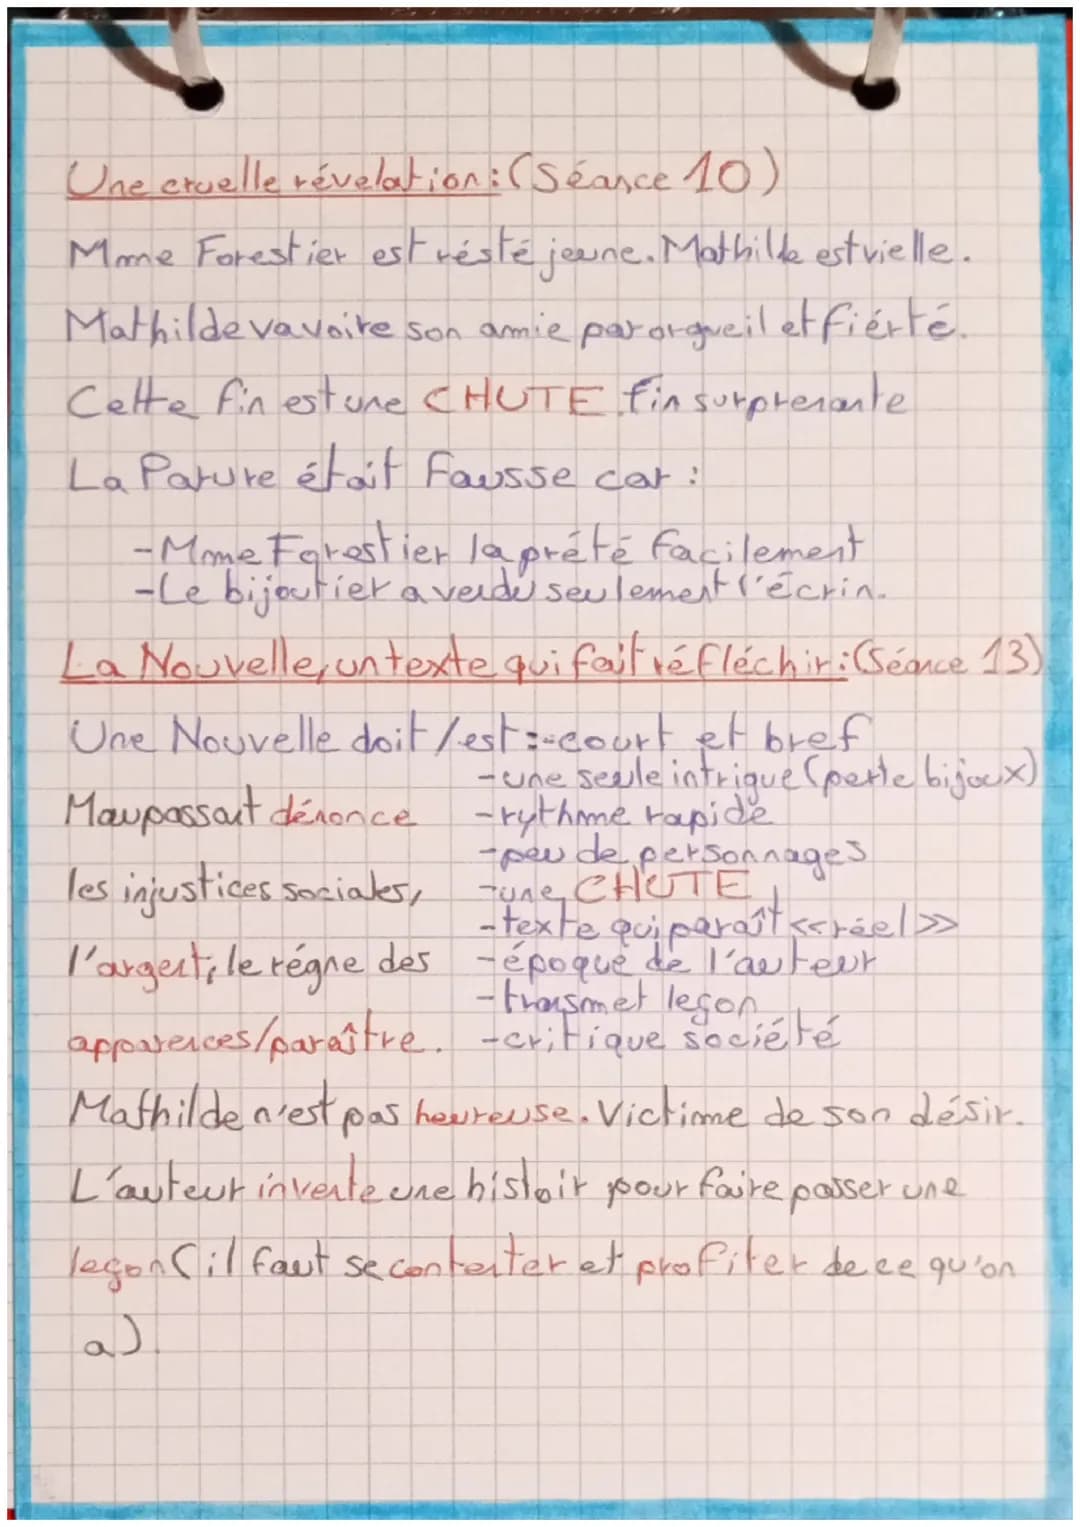 Une cruelle révelation : (Séance 10)
Mme Forestier est résté jeune. Mathilde est vielle.
Mathilde va voire son amie par orgueil et fiérté.
Cette fin est une CHUTE fin surprenante
La Parure était Fausse car :
-Mme Forestier la prété facilement
-Le bijoutier a vendu seulement l'écrin.
La Nouvelle, un texte qui fait réfléchir : (Séance 13)
Une Nouvelle doit / est : -court et bref
-une seule intrigue (perte bijoux)
Maupassant dénonce -rythme rapide
-peu de personnages
les injustices sociales, -une CHUTE
-texte qui paraît <<réel>>
l'argent, le régne des -époque de l'auteur
-transmet leçon
apparences/paraître. -critique société
Mathilde n'est pas heureuse. Victime de son désir.
L'auteur invente une histoir pour faire passer une
leçon (il faut se contenter et profiter de ce qu'on
a).